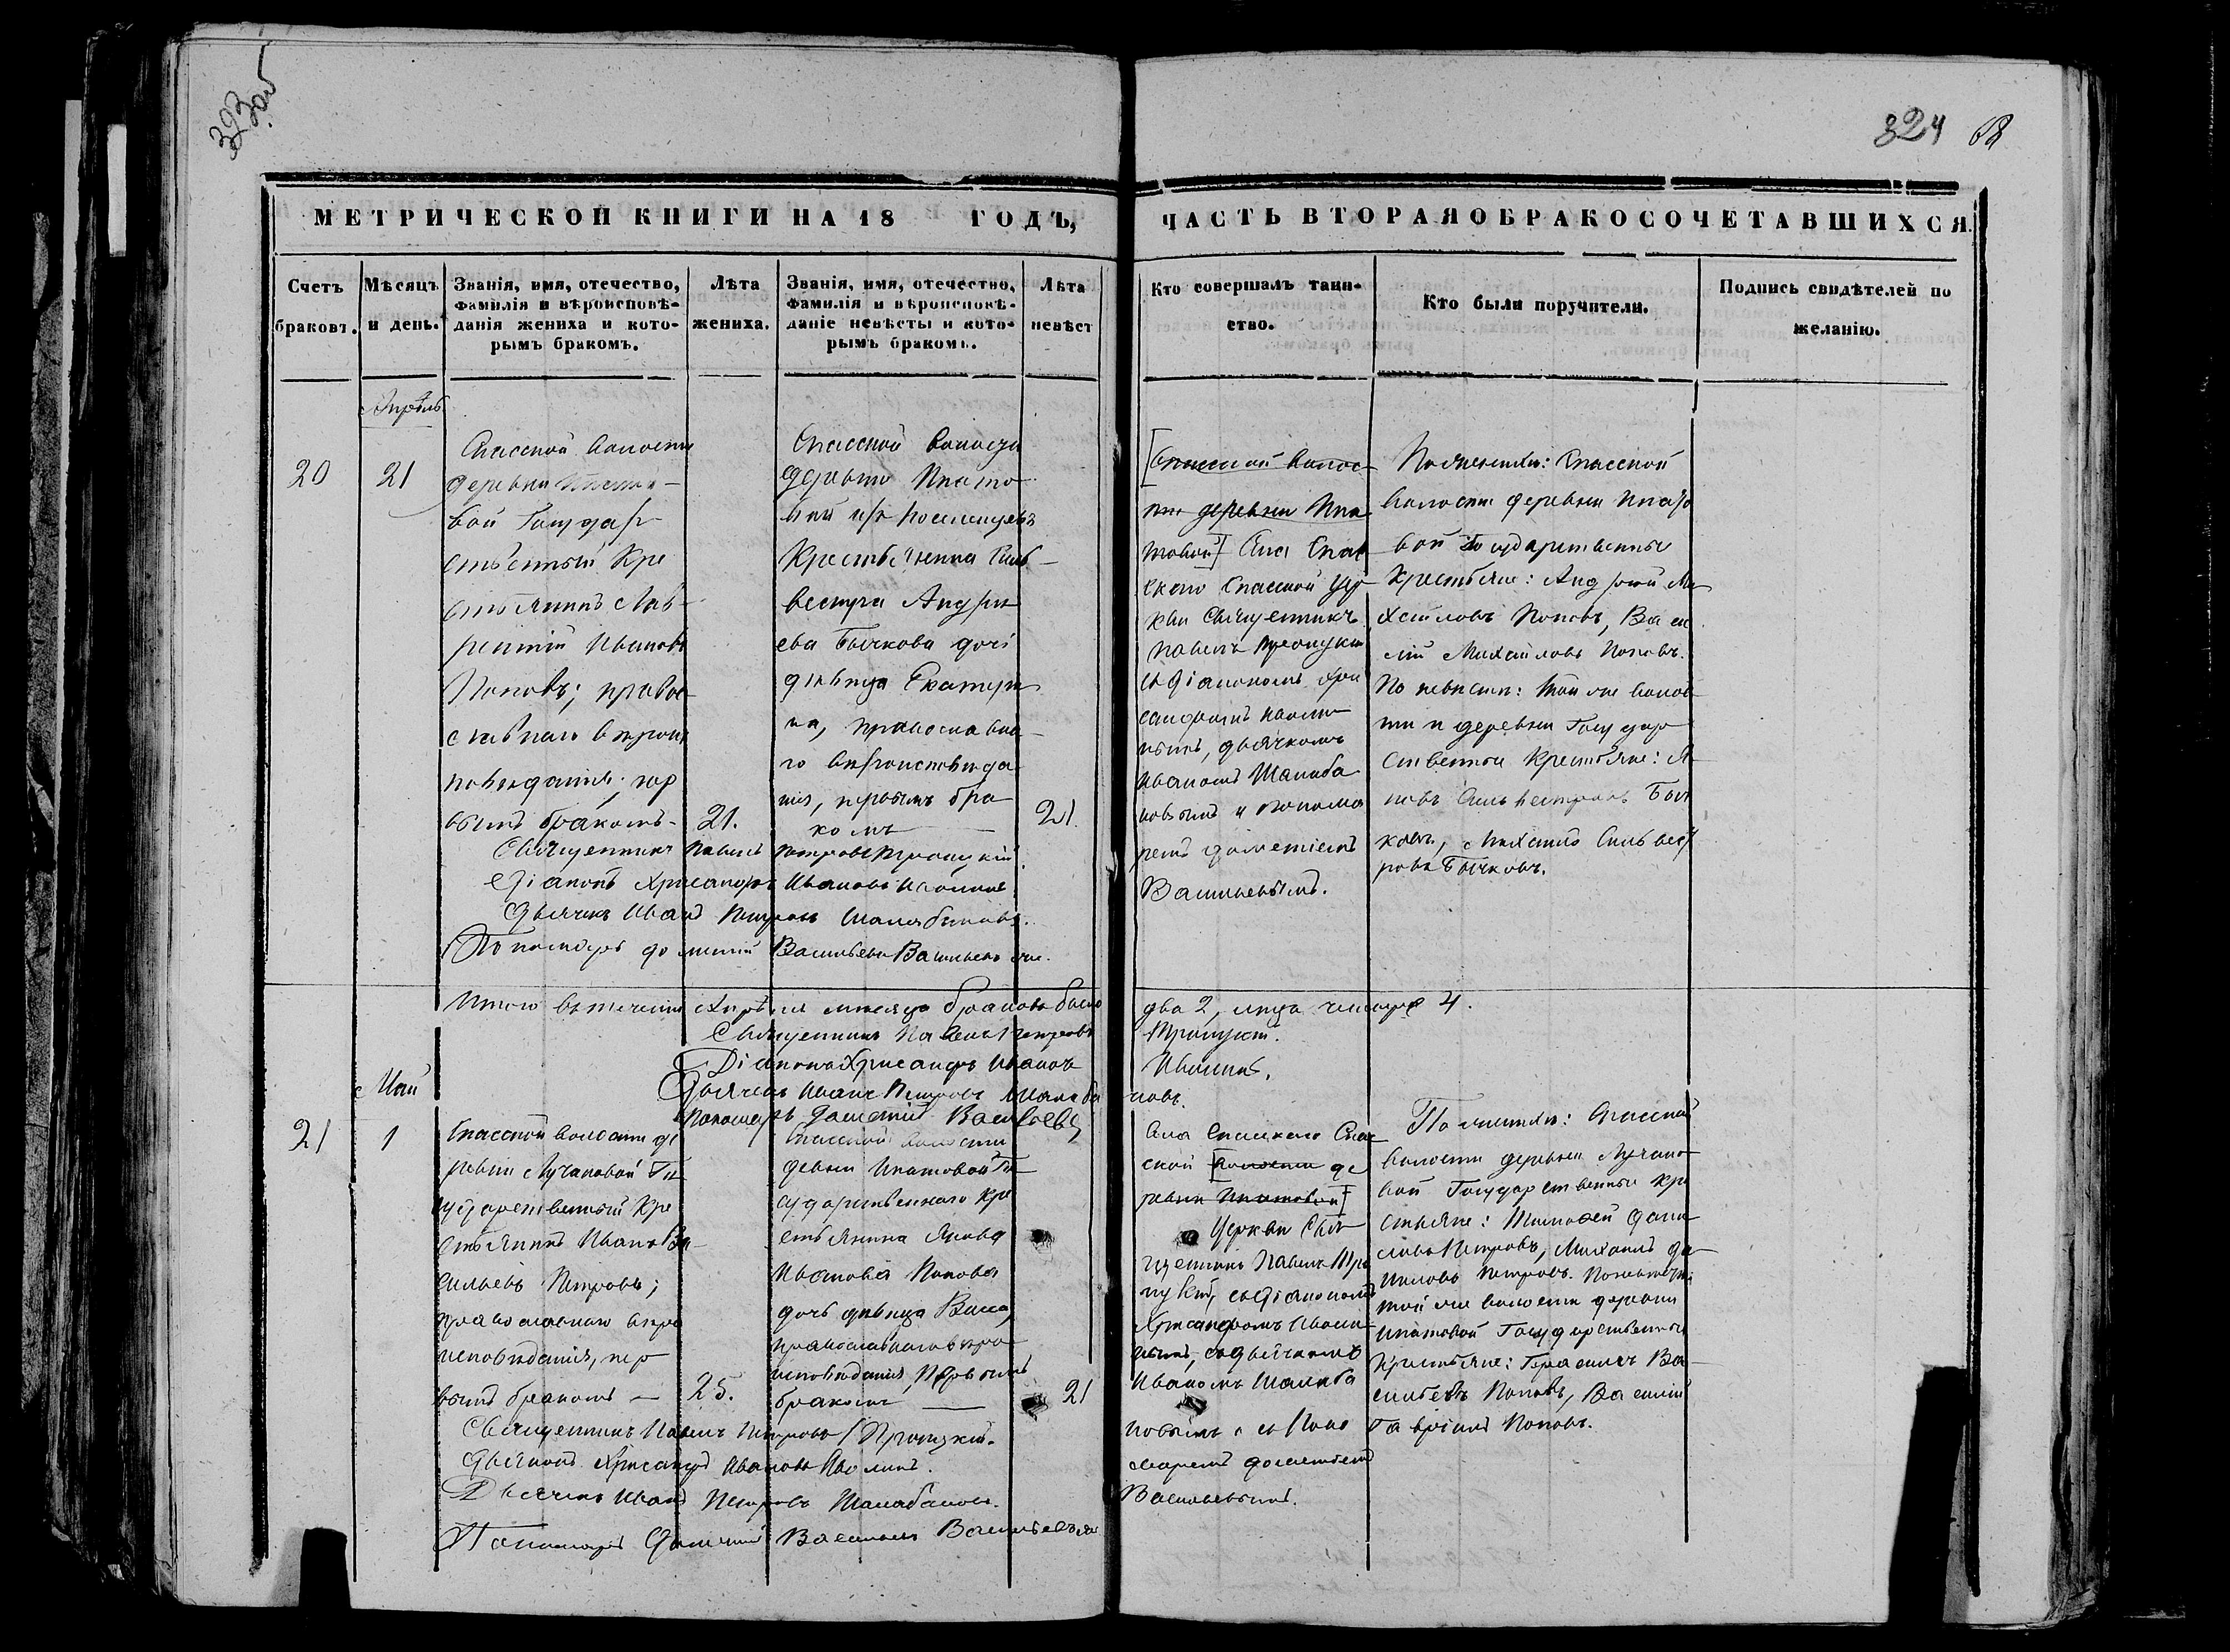 323об
324 68
МЕТРИЧЕСКОЙ КНИГИ НА 18 ГОДЪ,
ЧАСТЬ ВТОРАЯ О БРАКОСОЧЕТАВШИХСЯ.
Счетъ браковъ.
Мѣсяцъ и день.
Званія, имя, отечество,
фамилія и вѣроисповѣ-
данія жениха и кото-
рымъ бракомъ.
Лѣта
жениха.
Званія, имя, отечество,
фамилія и вѣроисповѣ-
даніе невѣсты и кото-
рымъ бракомъ.
Лѣта
невѣст
Кто совершалъ таин-
ство.
Кто были поручители.
Подпись свидѣтелей по
желанію.
Апрѣль
20
21
Спасской волости
деревни
вой Государ
ственный Кре
стьянинъ Лав-
рентій Ивановъ
Поповъ; право
славнаго вѣроис
повѣданія, пер
вымъ бракомъ-
21.
Спасской волости
деревни Ипато
вой
Крестьянина Силь-
вестра Андре
ева Бычкова дочь
дѣвица Екатери
на, православна-
го вѣроисповѣда
нія, первымъ бра
комъ —
21.
[Спасской волос-
ти деревни Ипа
товой] Села Спас
скаго Спасской Цер
кви Священникъ
Павелъ Троицкій
съ Діакономъ Хри
сандромъ Ивали
нымъ, дьячкомъ
Иваномъ Шалаба
новымъ и понома
ремъ Дометіемъ
Васильевымъ.
По женихѣ: Спасской
волости деревни Ипато
вой Государственные
Крестьяне: Андрей Ми
хайловъ Поповъ, Васи
лій Михайловъ Поповъ.
По невѣстѣ: той же волос
ти и деревни Государ
ственные Крестьяне: Я
ковъ Сильвестровъ Быч
ковъ, Михаилъ Сильвест
ровъ Бычковъ.
Священникъ Павелъ Петровъ Троицкій.
Діаконъ Хрисандръ Ивановъ Ивалинъ.
Дьячекъ Иванъ Петровъ Шалабановъ.
Пономарь Дометій Васильевъ Васильевъ же.
Итого въ теченіи Апрѣля мѣсяца браковъ было два 2, лица четыре 4.
Священникъ Павелъ Петровъ Троицкій.
Діаконъ Хрисандръ Ивановъ Ивалинъ.
Дьячекъ Иванъ Петровъ Шалаба новъ.
Пономарь Дометій Васильевъ
Май
21
1
Спасской волости де
ревни Лучановой Го
сударственный Кре
стьянинъ Иванъ Ва-
сильевъ Петровъ;
православнаго вѣро
исповѣданія, пер
вымъ бракомъ —
25.
Спасской волости
девни Ипатовой Го
сударственнаго Кре
стьянина Якова
Иванова Попова
дочь дѣвица Васса,
православнаго вѣро
исповѣданія, первымъ
бракомъ —
21
Села Спасскаго Спас
ской [волости де
ревни Ипатовой]
Церкви Свя
щенникъ Павелъ Тро
ицкій, съ Діакономъ
Хрисандромъ Ивали
нымъ, съ дьячкомъ
Иваномъ Шалаба
новымъ и съ Поно
маремъ Дометіемъ
Васильевымъ.
По женихѣ: Спасской
волости деревни Лучано
вой Государственные Кре
стьяне: Тимофей Дани
ловъ Петровъ, Михаилъ Да
ниловъ Петровъ. По невѣстѣ:
той же волости деревни
Ипатовой Государственные
Крестьяне: Герасимъ Ва-
сильевъ Поповъ, Василій
Гавріилъ Поповъ.
Священникъ Павелъ Петровъ Троицкій.
Діаконъ Хрисандръ Ивановъ Ивалинъ.
Дьячекъ Иванъ Петровъ Шалабановъ.
Пономарь Дометій Васильевъ Васильевъ же